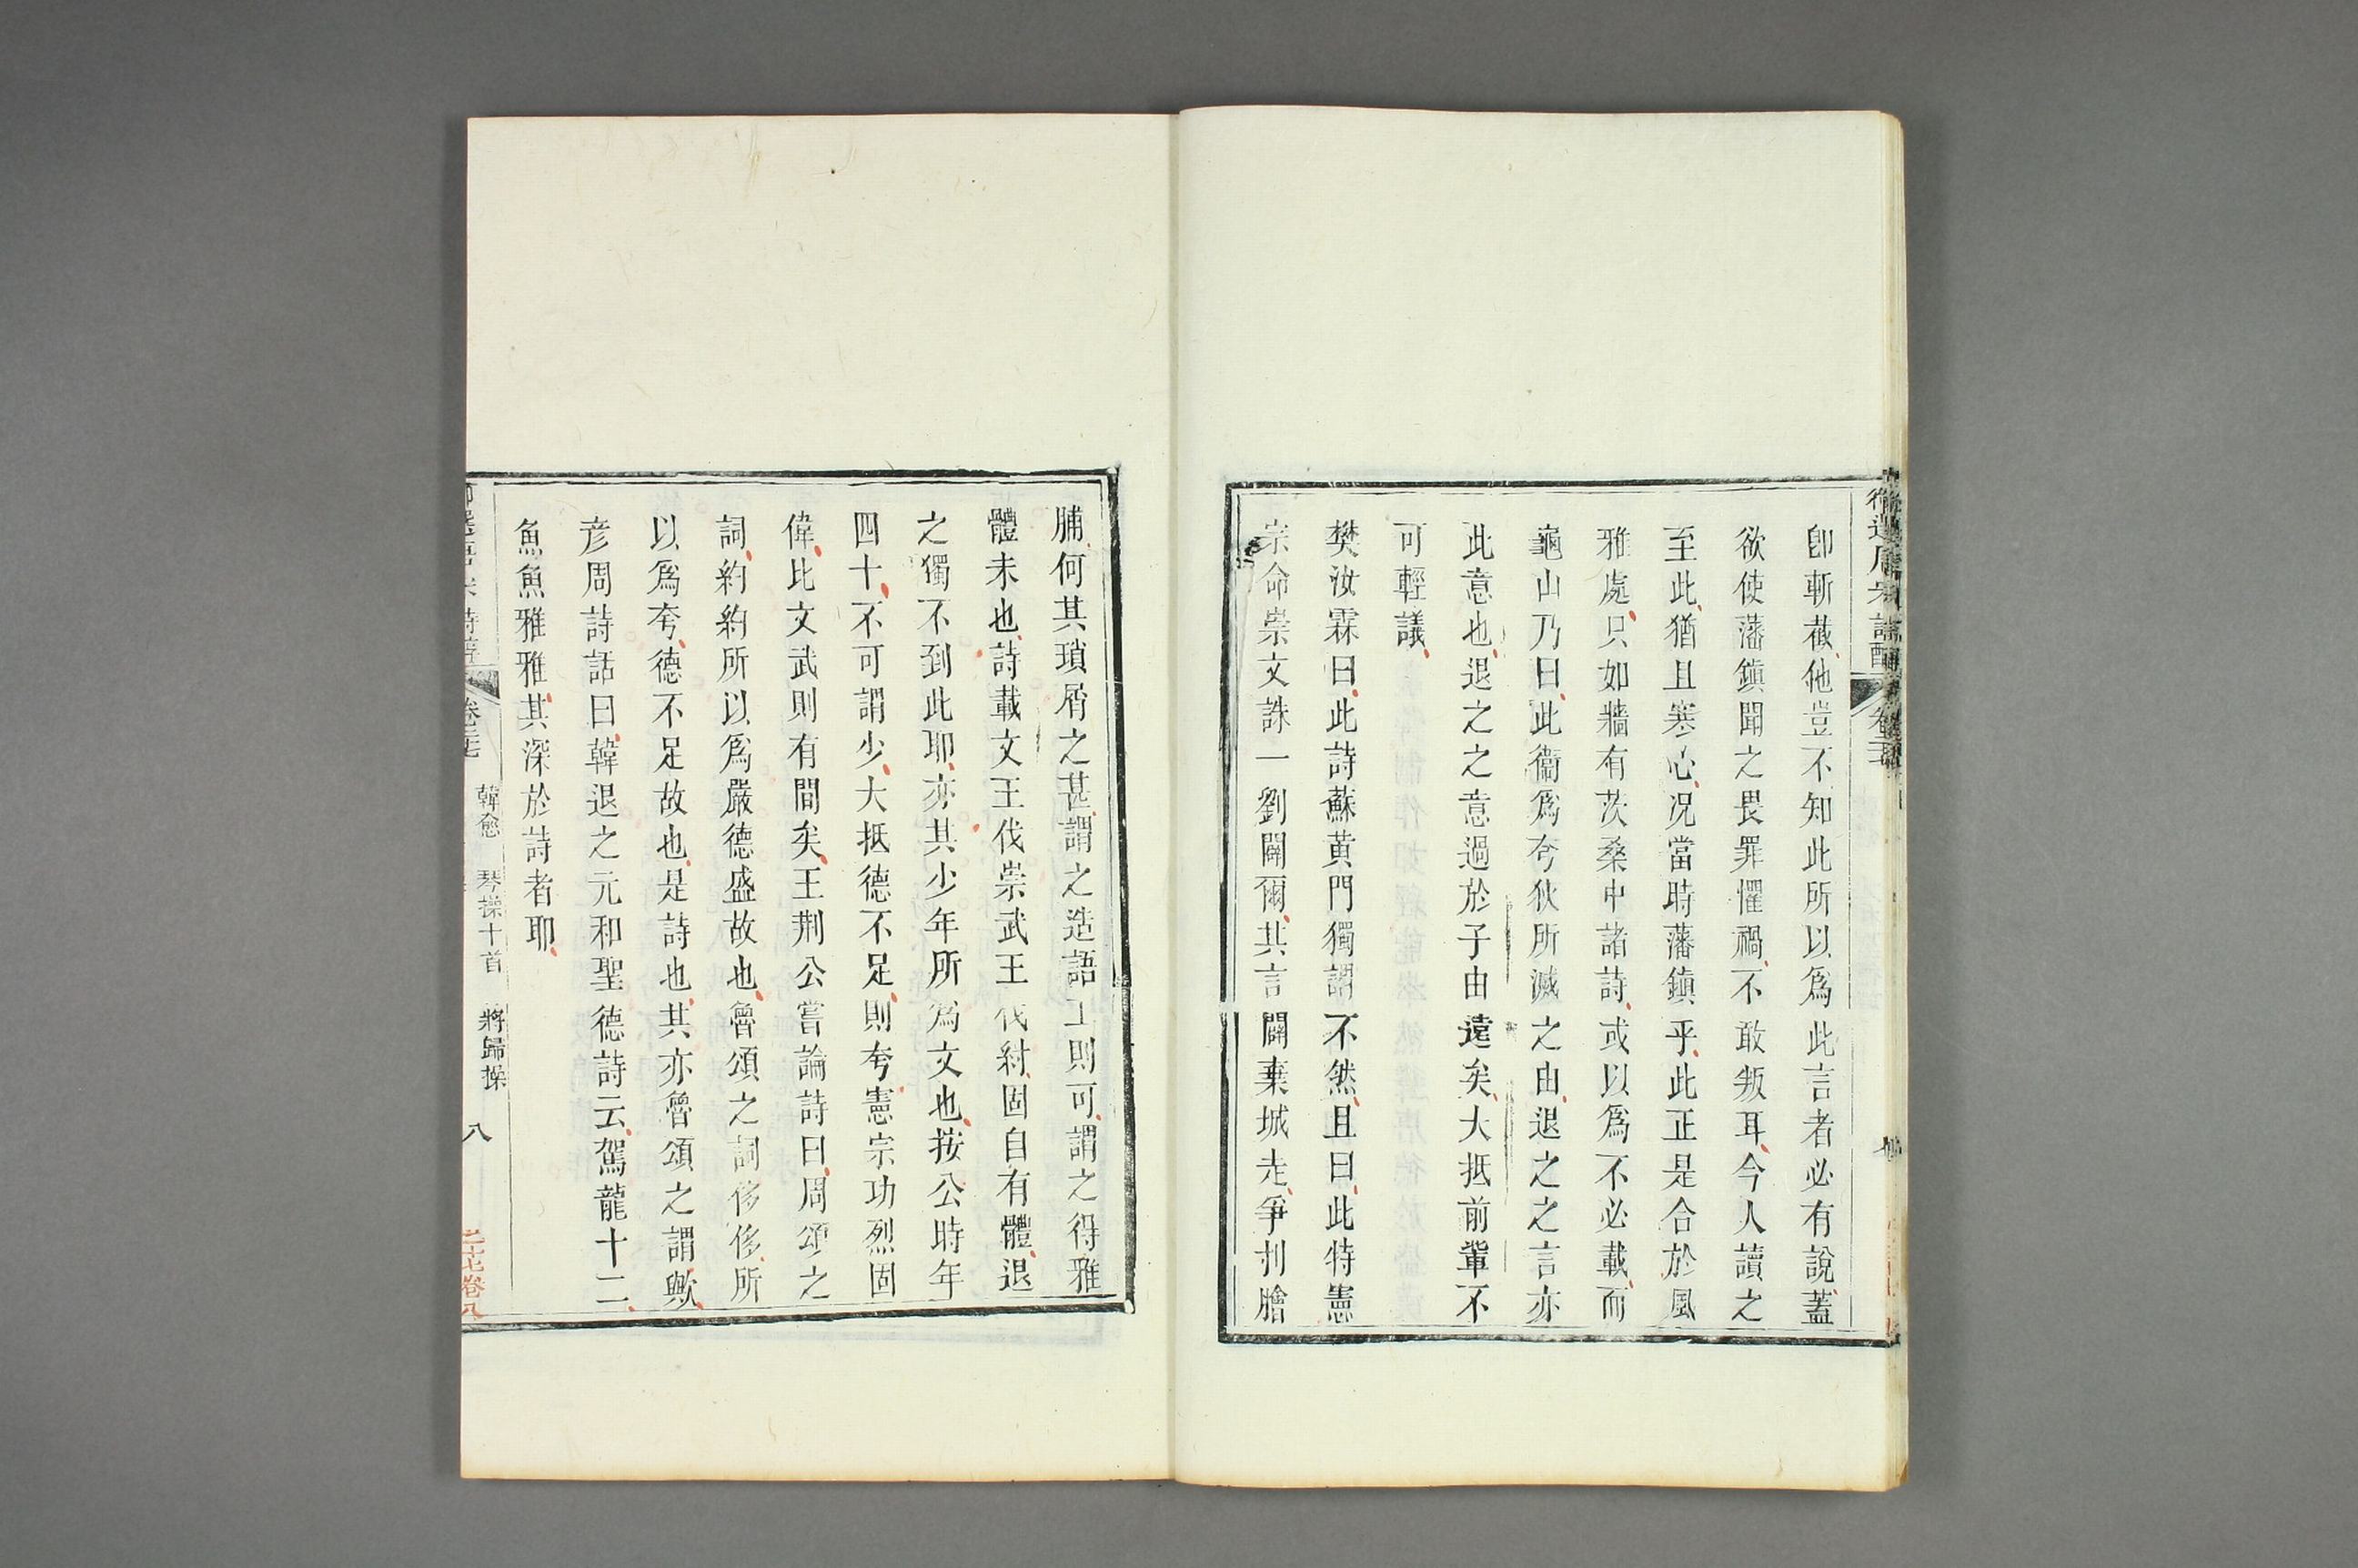 卽斬截他豈不知此所以爲此言者必有說蓋
欲使藩鎮聞之畏罪懼禍不敢叛耳今人讀之
至此猶且寒心况當時藩鎮乎此正是合於風
雅處只如牆有茨桑中諸詩或以爲不必載而
龜山乃曰此衞爲夸狄所滅之由退之之言亦
此意也退之之意過於子由遠矣大抵前輩不
可輕議
樊汝霖曰此詩蘇黃門獨謂不然且曰此特憲
宗命崇文誅一劉闢爾其言闢棄城走爭刌膾
脯何其瑣屑之甚謂之造語工則可謂之得雅
體未也詩載文王伐崇武王伐紂固自有體退
之獨不到此耶亦其少年所爲文也按公時年
四十不可謂少大抵德不足則夸憲宗功烈固
偉比文武則有間矣王荆公嘗論詩曰周頌之
詞約約所以爲嚴德盛故也魯頌之詞侈侈所
以爲夸德不足故也是詩也其亦魯頌之謂歟
彦周詩話曰韓退之元和聖德詩云駕龍十二
魚魚雅雅其深於詩者耶
卷二十七 韓愈 琴操十首 將歸操 八
二十七卷八